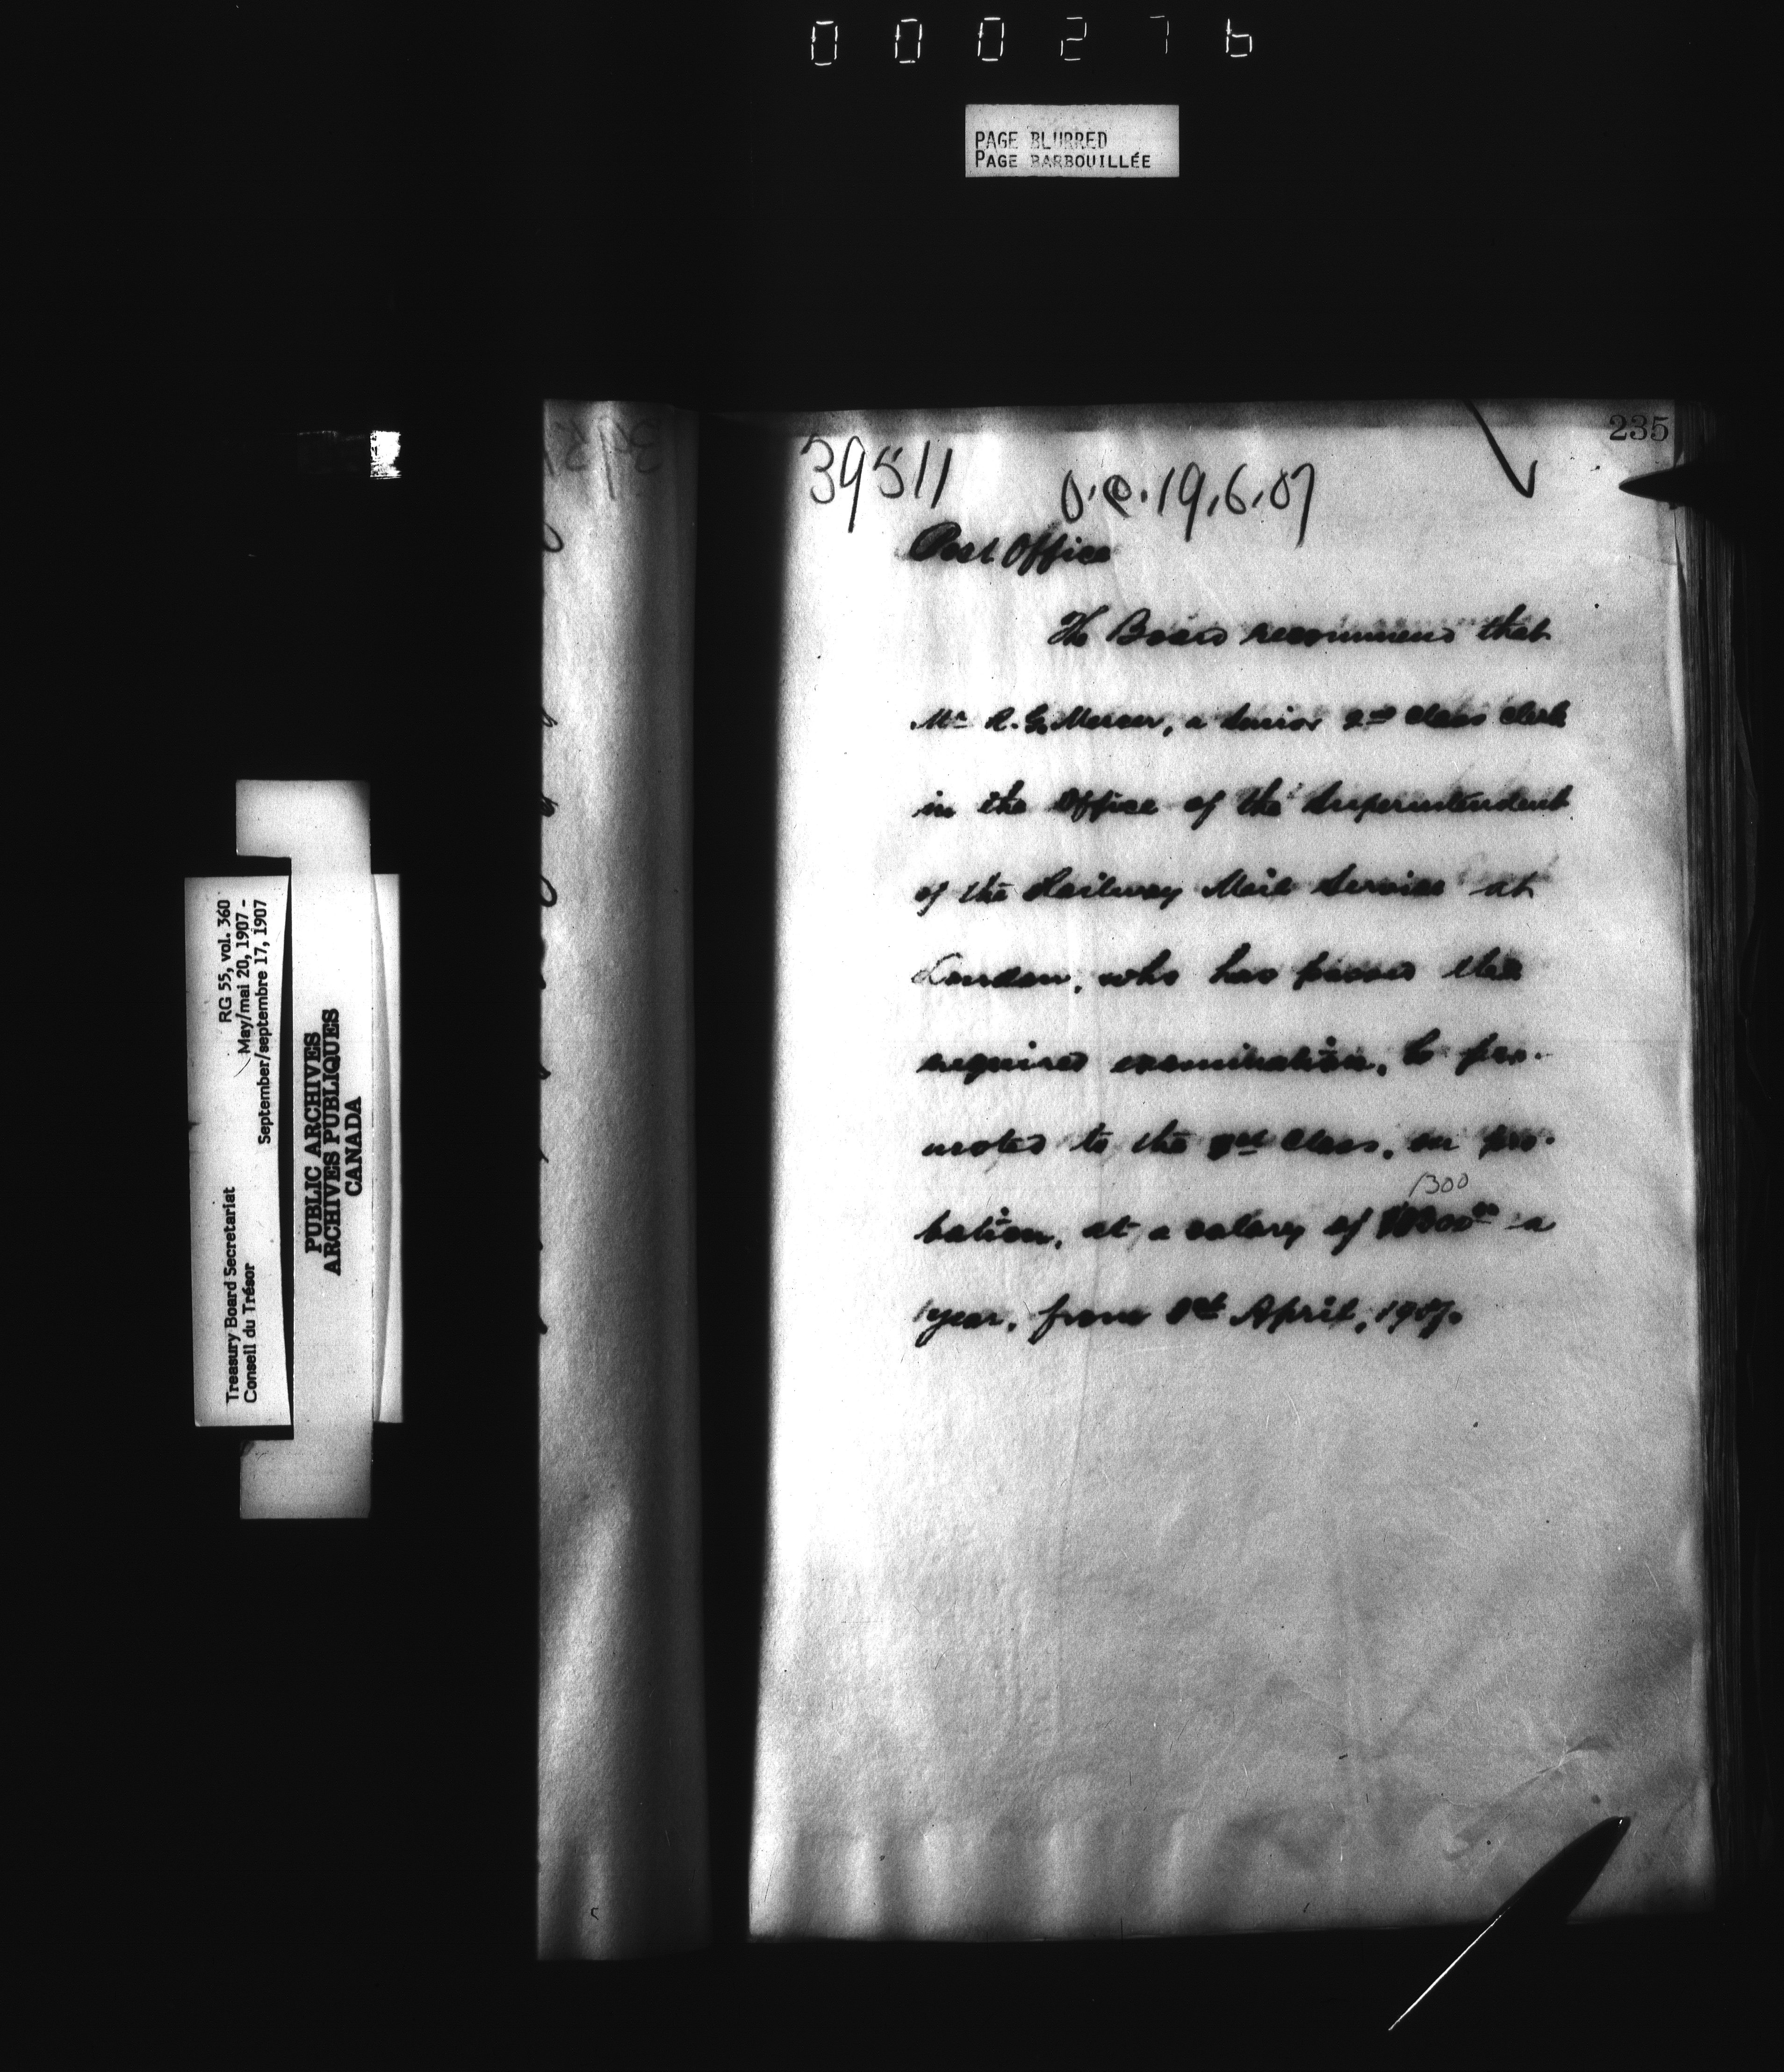 000276
PAGE BLURRED
PAGE BARBOUILLÉE
235
39511
O.C. 19.6.07
Post Office
The Board recommend that
Mr R. G. Mercer, a Senior 2nd Class Clerk
in the Office of the Superintendent
of the Railway Mail Service at
London, who has passed the
required examination, be pro-
moted to the 1st Class, on pro-
1300
bation, at a salary of $1300 00 a
year, from 1st April, 1907.
RG 55, vol. 360
May/mai 20, 1907 -
September/septembre 17, 1907
Treasury Board Secretariat
Conseil du Trésor
PUBLIC ARCHIVES
ARCHIVES PUBLIQUES
CANADA